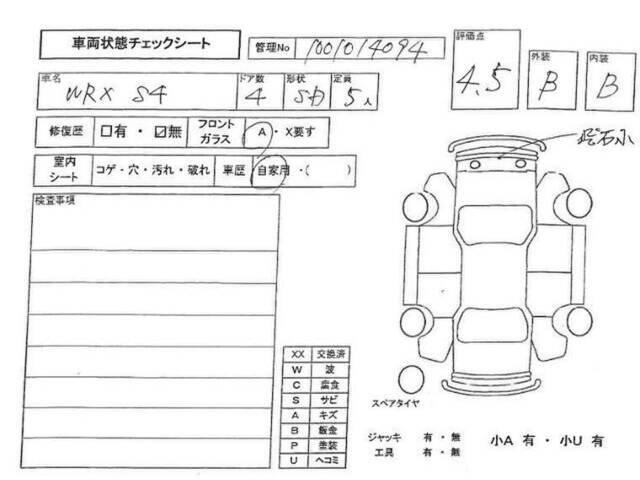 車両状態チェックシート
管理No 1001014094
評価点 4.5
外装 B
内装 B
車名 WRX S4
ドア数 4
形状 SD
定員 5人
修復歴 □有・☑無
フロントガラス A・X要す
飛石小
室内シート コゲ・穴・汚れ・破れ
車歴 自家用・( )
検査事項
XX 交換済
W 波
C 腐食
S サビ
A キズ
B 鈑金
P 塗装
U ヘコミ
スペアタイヤ
ジャッキ 有・無
工具 有・無
小A 有・小U 有